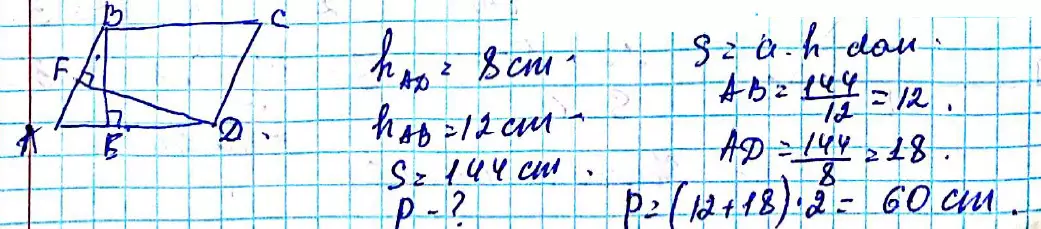 B
C
F
A
E
D.
h_AD = 8 cm.
h_AB = 12 cm.
S = 144 cm.
P - ?
S = a · h dan.
AB = 144/12 = 12.
AD = 144/8 = 18.
P = (12 + 18) · 2 = 60 cm.